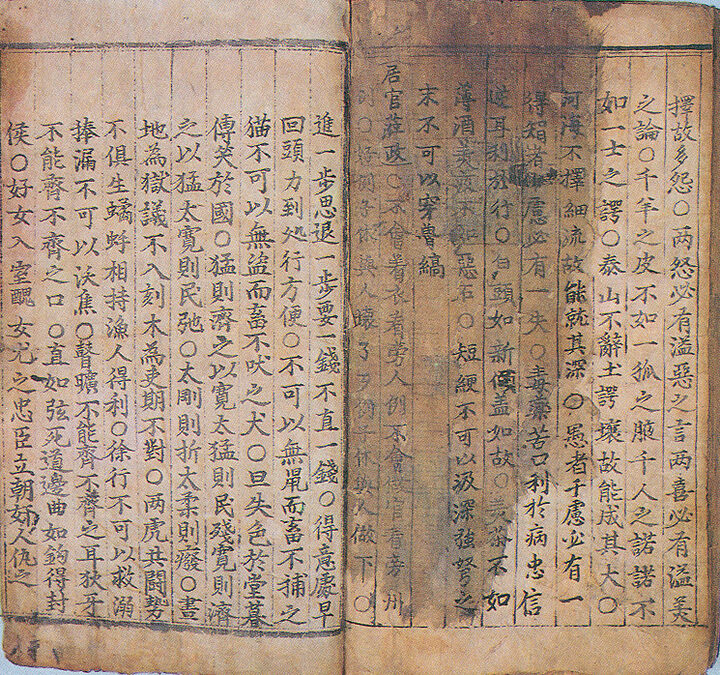 擇故多怨〇两怒必有溢惡之言两喜必有溢美
之論〇千羊之皮不如一狐之腋千人之諾諾不
如一士之諤〇泰山不辭土諤壤故能成其大〇
河海不擇細流故能就其深〇愚者千慮必有一
得智者千慮必有一失〇毒藥苦口利於病忠信
逆耳利於行〇白頭如新傾盖如故〇美茶不如
薄酒美妓不如惡石〇短綆不可以汲深強弩之
末不可以穿魯縞
居官莅政〇不會着衣看旁人例不會做官看旁州
例〇好例子休與人壞了歹例子休與人做下〇
進一步思退一步要一錢不直一錢〇得意處早
回頭力到処行方便〇不可以無鼠而畜不捕之
猫不可以無盗而畜不吠之犬〇旦失色於堂暮
傳笑於國〇猛則濟之以寛太猛則民殘寛則濟
之以猛太寛則民弛〇太剛則折太柔則癈〇畫
地為獄議不入刻木為吏期不對〇两虎共闘勢
不俱生蠘蚌相持漁人得利〇徐行不可以救溺
捧漏不可以沃焦〇瞽曠不能齊不齊之耳狄牙
不能齊不齊之口〇直如弦死道邊曲如鉤得封
侯〇好女入室醜女尤之忠臣立朝奸人仇之